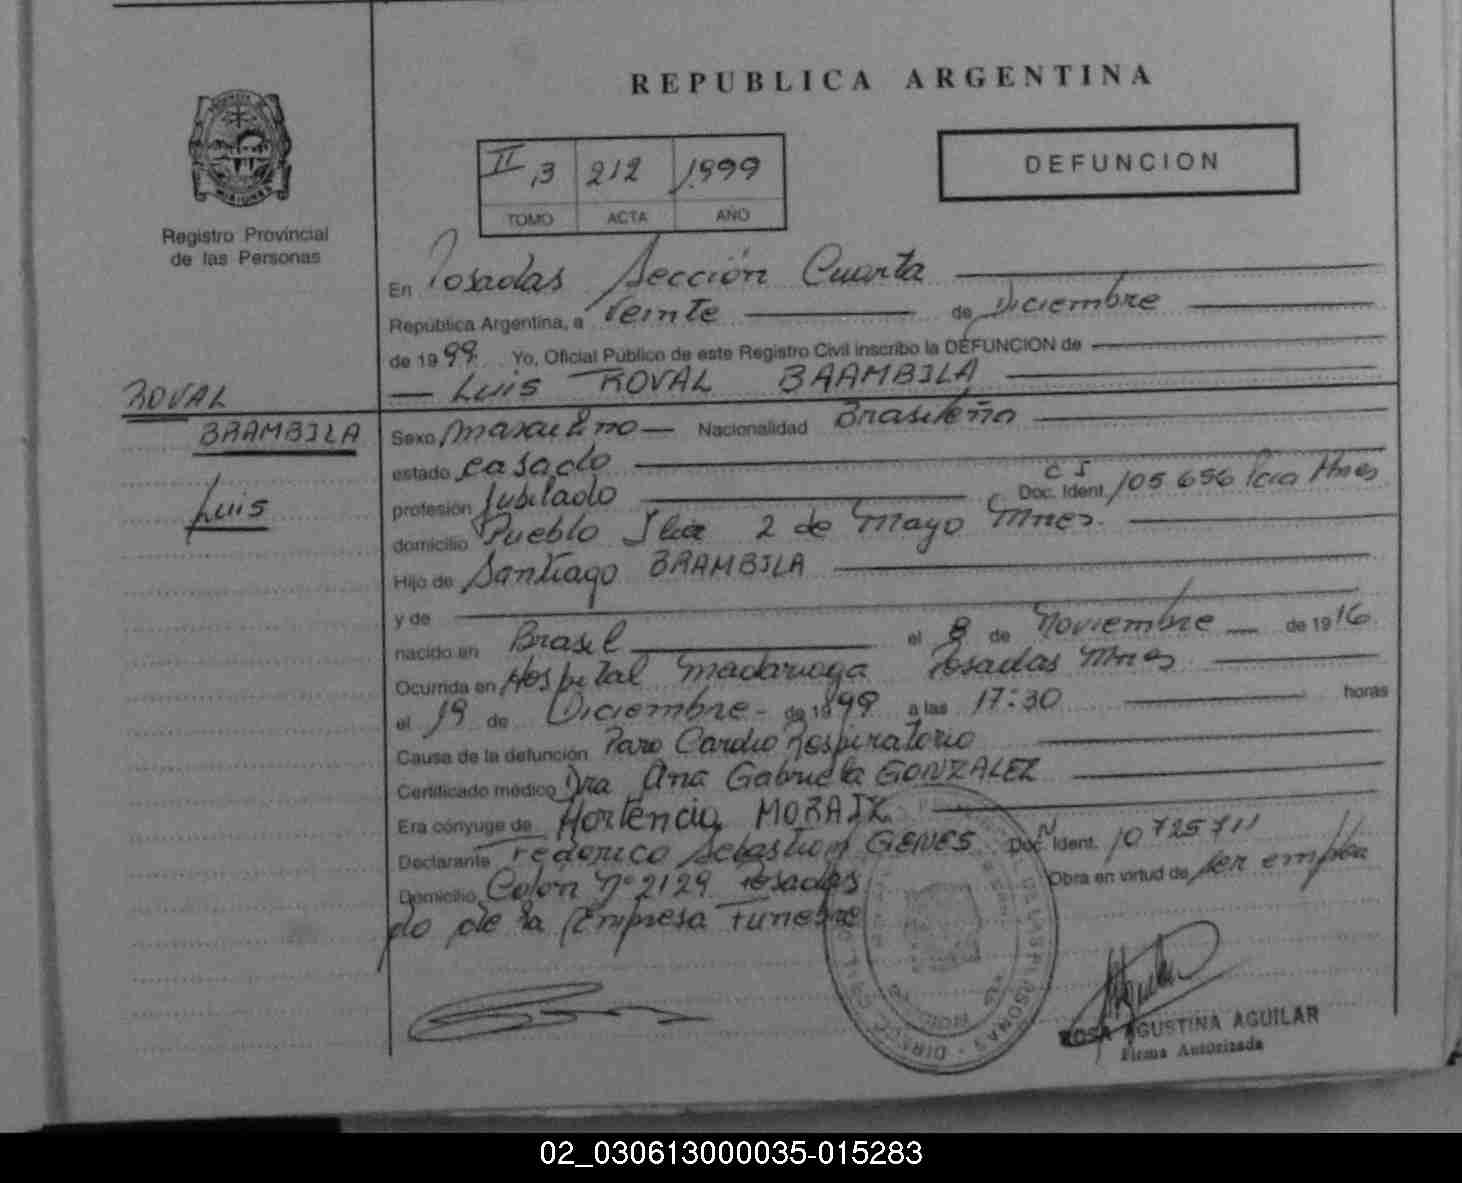 REPUBLICA ARGENTINA
II,3 212 1.999
TOMO ACTA AÑO
DEFUNCION
Registro Provincial
de las Personas
En Posadas Sección Cuarta
República Argentina, a Veinte de Diciembre
de 1999. Yo, Oficial Público de este Registro Civil inscribo la DEFUNCION de
Luis ROVAL BRAMBILA
ROVAL
BRAMBILA
Luis
Sexo Masculino Nacionalidad Brasileña
estado casado
profesión Jubilado Doc. Ident. C I 105 656 Pcia Mnes
domicilio Pueblo Ilia 2 de Mayo Mnes.
Hijo de Santiago BRAMBILA
y de
nacido en Brasil el 8 de Noviembre de 1916.
Ocurrida en Hospital Madariaga Posadas Mnes
el 19 de Diciembre de 1999 a las 17:30 horas
Causa de la defunción Paro Cardio Respiratorio
Certificado médico Dra Ana Gabriela GONZALEZ
Era cónyuge de Hortencia
Declarante Federico Sebastian GENES Doc. N Ident. 10725711
Domicilio Colon Nº 2129 Posadas Obra en virtud de ser emplea
do de la Empresa Funebre
ROSA AGUSTINA AGUILAR
Firma Autorizada
02_030613000035-015283